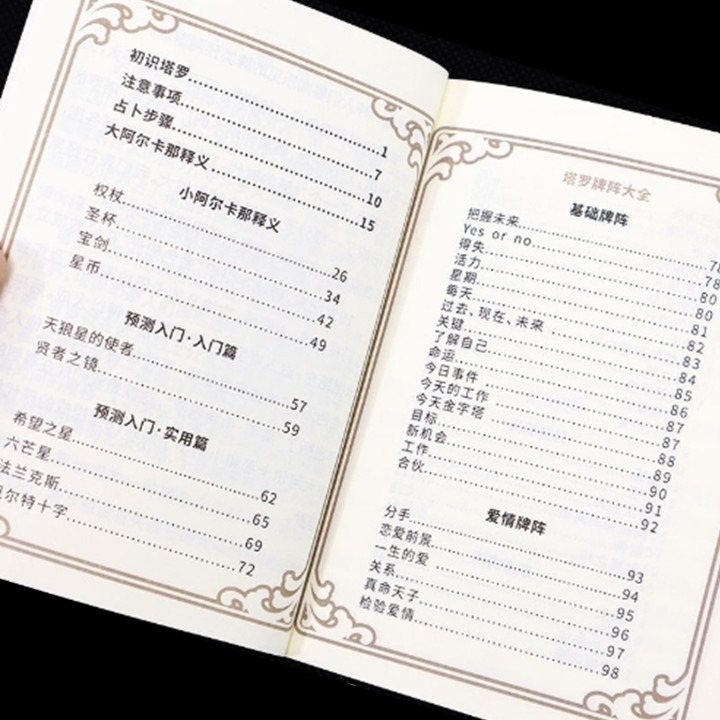 初识塔罗……1
注意事项……7
占卜步骤……10
大阿尔卡那释义……15
小阿尔卡那释义
权杖……26
圣杯……34
宝剑……42
星币……49
预测入门·入门篇
天狼星的使者……57
贤者之镜……59
预测入门·实用篇
希望之星……62
六芒星……65
法兰克斯……69
尔特十字……72
塔罗牌阵大全
基础牌阵
把握未来……7
Yes or no……78
得失……80
活力……80
星期……81
每天……82
过去、现在、未来……83
关键……84
了解自己……85
命运……86
今日事件……87
今天的工作……87
今天金字塔……88
目标……89
新机会……90
工作……91
合伙……92
爱情牌阵
分手……93
恋爱前景……94
一生的爱……95
关系……96
真命天子……97
检验爱情……98